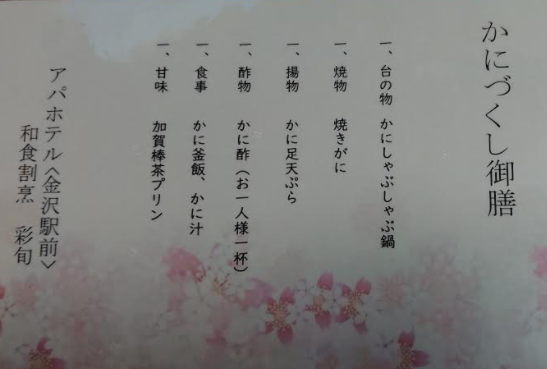 かにづくし御膳
一、台の物 かにしゃぶしゃぶ鍋
一、焼物 焼きがに
一、揚物 かに足天ぷら
一、酢物 かに酢(お一人様一杯)
一、食事 かに釜飯、かに汁
一、甘味 加賀棒茶プリン
アパホテル〈金沢駅前〉
和食割烹 彩旬